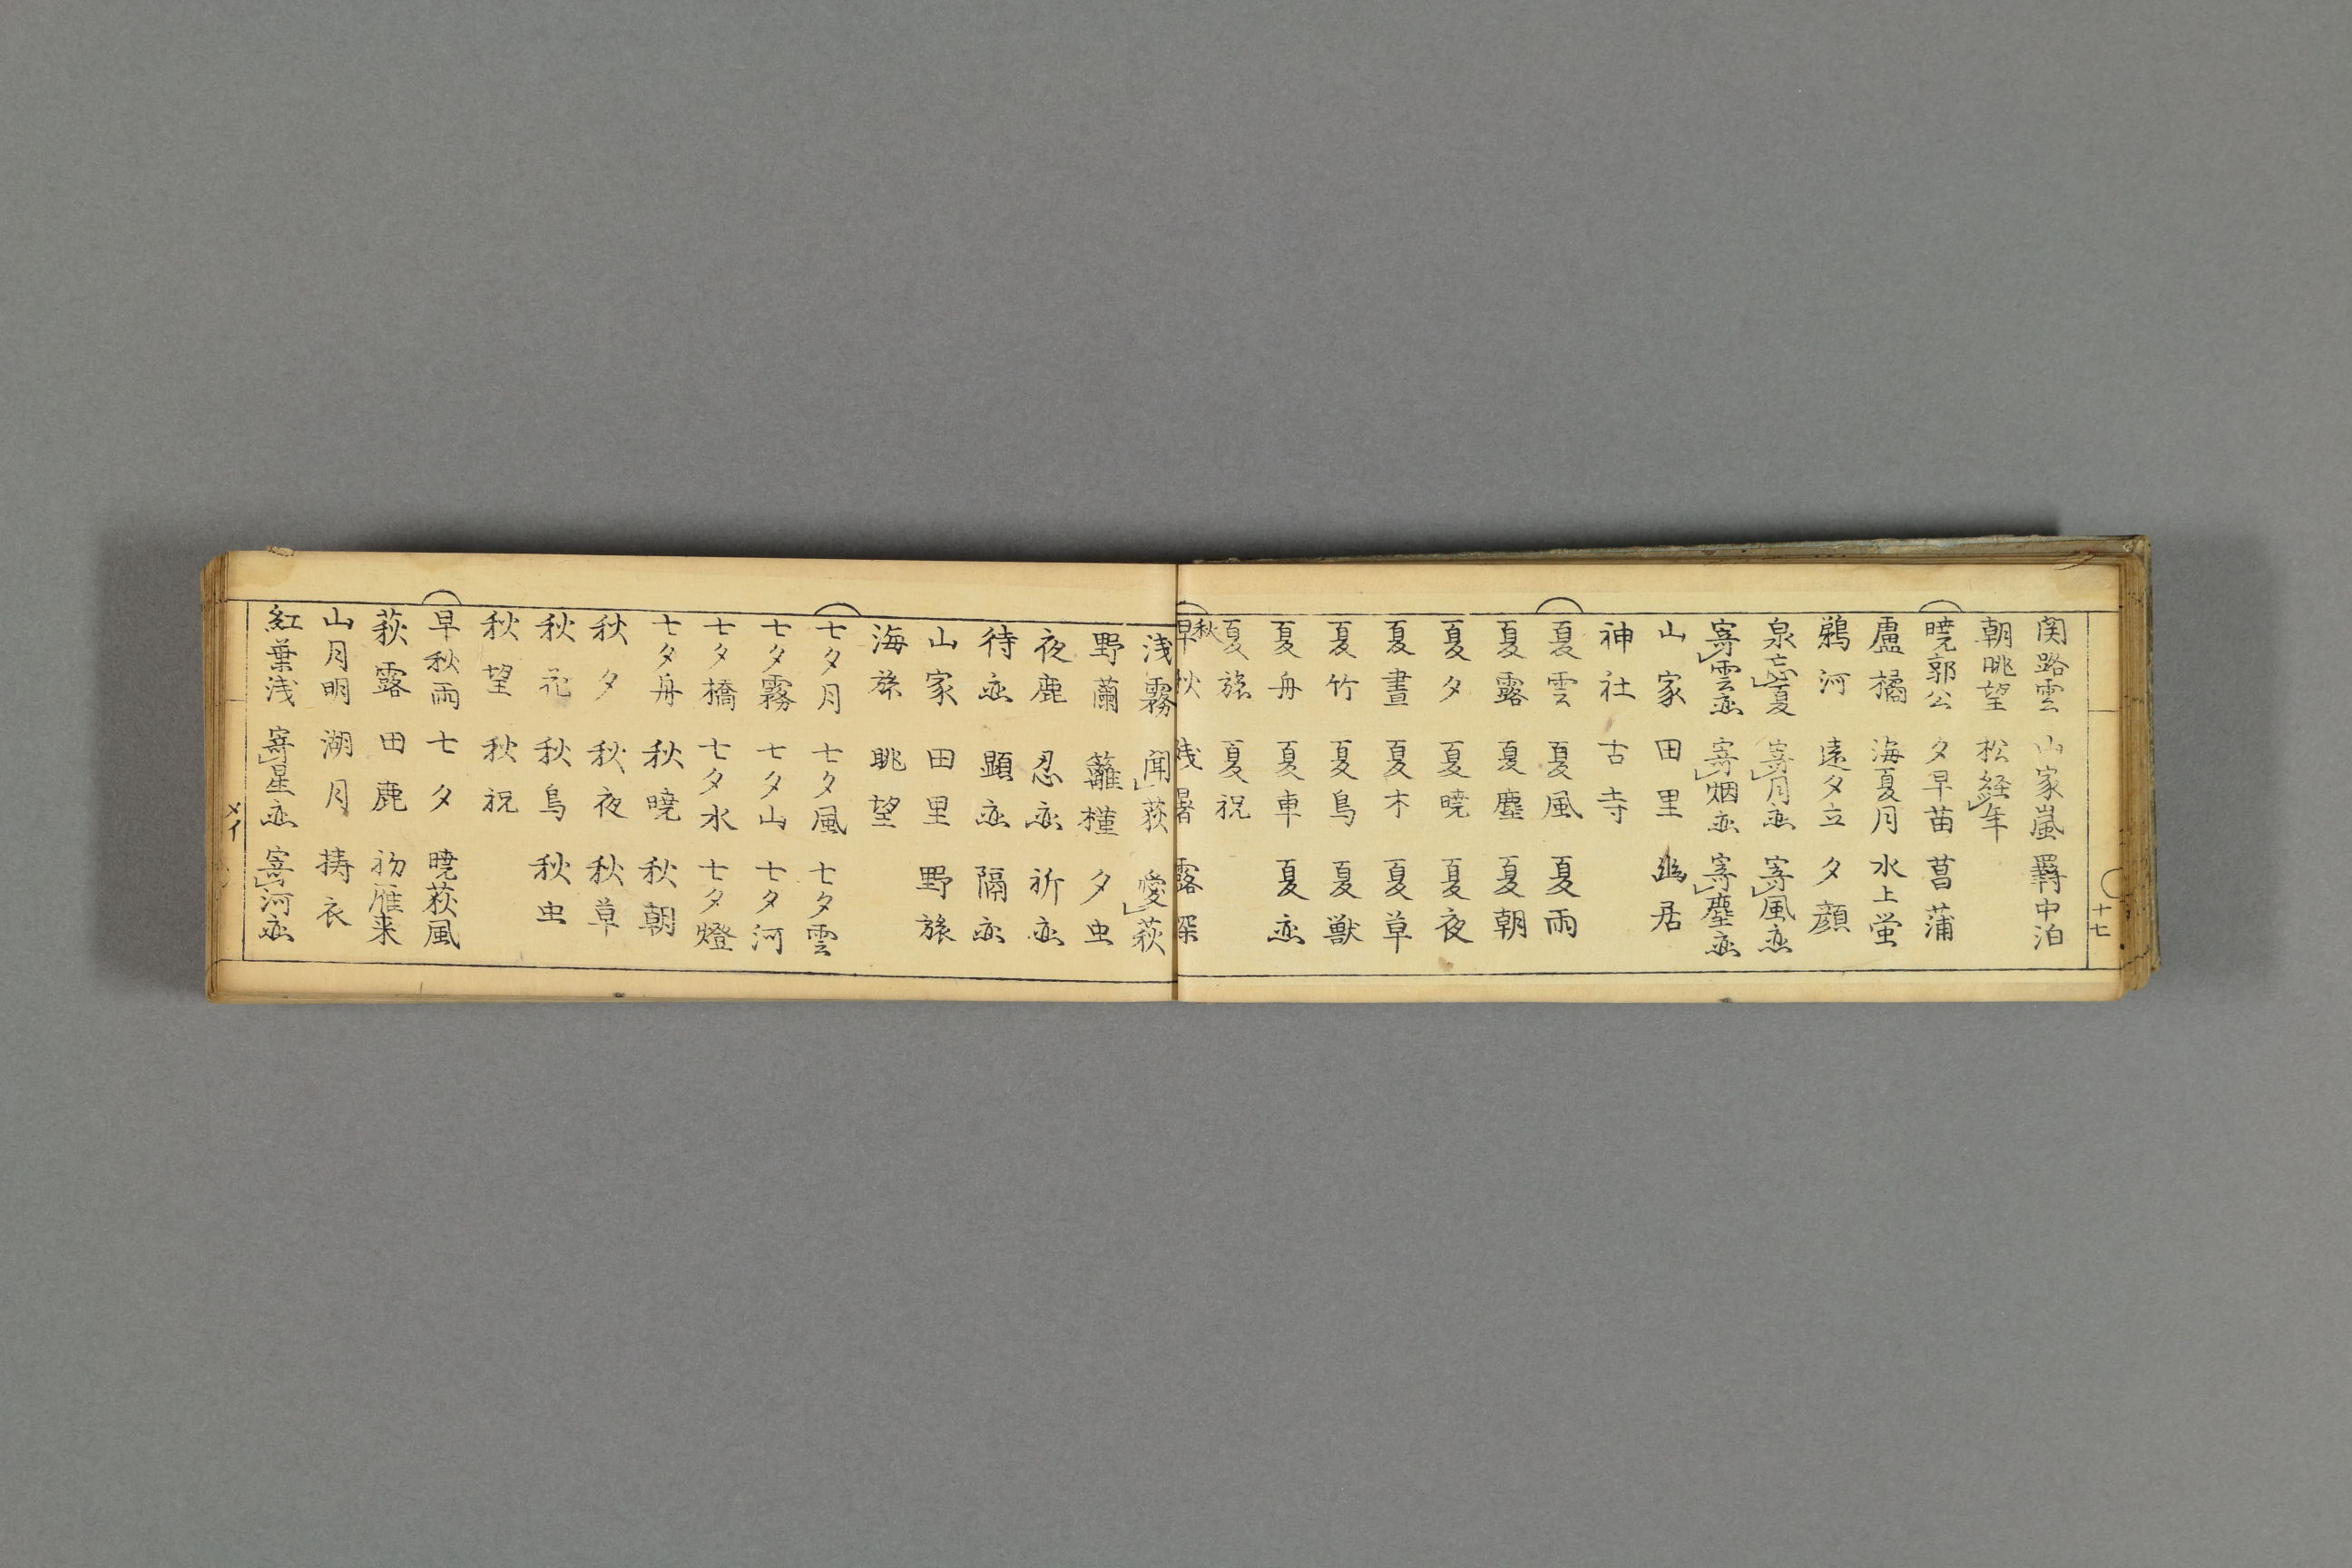 十七
関路雲 山家嵐 羇中泊
朝眺望 松経年
暁郭公 夕早苗 菖蒲
盧橘 海夏月 水上蛍
鵜河 遠夕立 夕顔
泉忘夏 寄月恋 寄風恋
寄雲恋 寄烟恋 寄塵恋
山家 田里 幽居
神社 古寺
夏雲 夏風 夏雨
夏露 夏塵 夏朝
夏夕 夏暁 夏夜
夏昼 夏木 夏草
夏竹 夏鳥 夏獣
夏舟 夏車 夏恋
夏旅 夏祝
秋
早秋 残暑 露深
浅霧 聞荻 愛萩
野蘭 籬槿 夕虫
夜鹿 忍恋 祈恋
待恋 顕恋 隔恋
山家 田里 野旅
海旅 眺望
七夕月 七夕風 七夕雲
七夕霧 七夕山 七夕河
七夕橋 七夕水 七夕燈
七夕舟 秋暁 秋朝
秋夕 秋夜 秋草
秋花 秋鳥 秋虫
秋望 秋祝
早秋雨 七夕 暁荻風
萩露 田鹿 初雁来
山月明 湖月 擣衣
紅葉浅 寄星恋 寄河恋
メイ